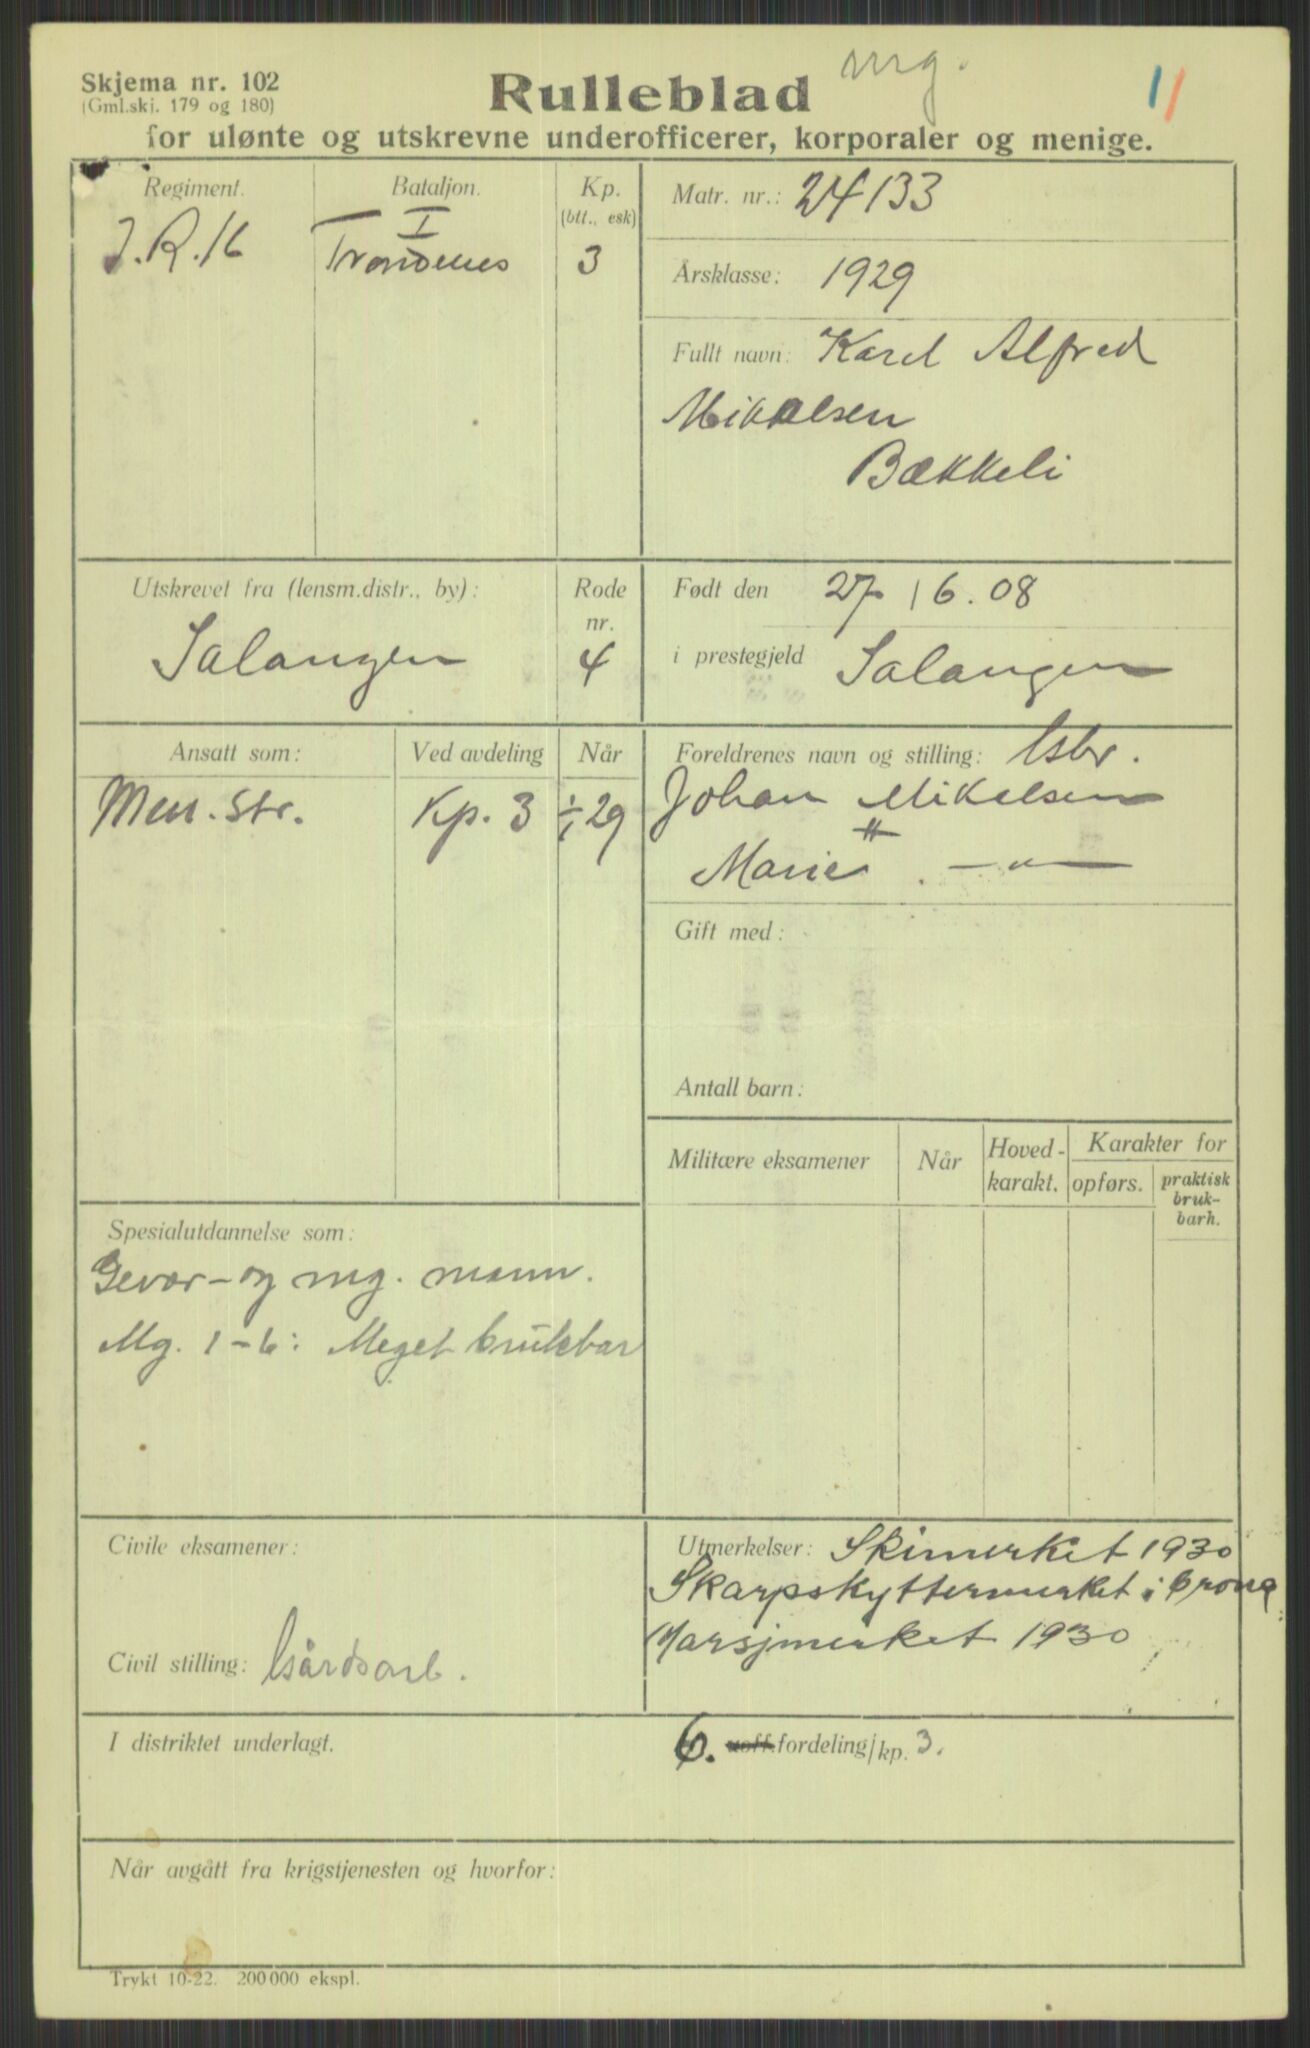 mg.
Skjema nr. 102
(Gml.skj. 179 og 180)
Rulleblad
11
for ulønte og utskrevne underofficerer, korporaler og menige.
Regiment. Bataljon. Kp.
(btt., esk)
J.R.16 I
Trondenes 3
Matr. nr.: 24133
Årsklasse: 1929
Fullt navn: Karel Alfred
Mikkelsen
Bækkeli
Utskrevet fra (lensm.distr., by): Rode
nr.
Salangen 4
Født den 27/6.08
i prestegjeld Salangen
Ansatt som: Ved avdeling Når
Men. str. Kp. 3 1/1 29
Foreldrenes navn og stilling: Gsbr.
Johan Mikalsen
Marie — " —
Gift med:
Antall barn:
Militære eksamener Når Hoved-
karakt. Karakter for
opførs. praktisk
bruk-
barh.
Spesialutdannelse som:
Gevær- og mg. mann.
Mg. 1-6: Meget brukbar
Civile eksamener:
Civil stilling: Gårdsarb.
Utmerkelser: Skimerket 1930
Skarpskyttermerket i bronse
Marsjmerket 1930
I distriktet underlagt.
6. uoff.fordeling/kp. 3.
Når avgått fra krigstjenesten og hvorfor:
Trykt 10-22. 200 000 ekspl.